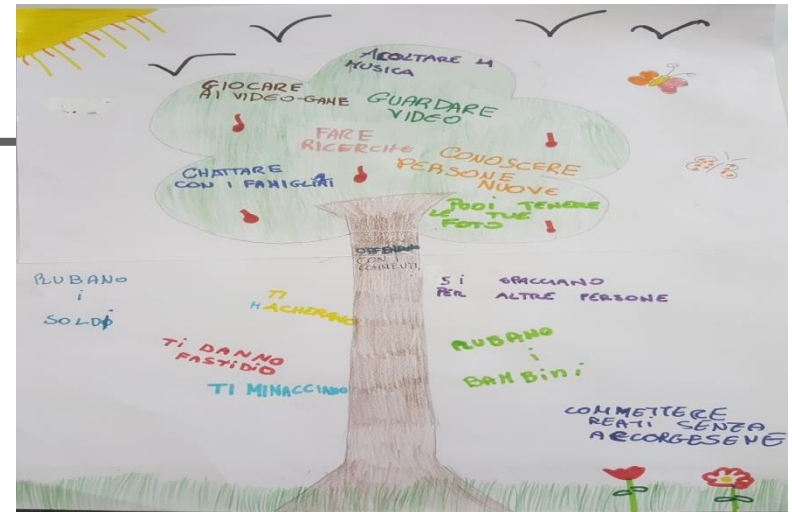 ASCOLTARE LA
MUSICA
GIOCARE
AI VIDEO-GANE
GUARDARE
VIDEO
FARE
RICERCHE
CONOSCERE
PERSONE
NUOVE
CHATTARE
CON I FAMIGLIARI
PUOI TENERE
LE TUE
FOTO
OFFENDONO
CON I
COMMENTI
RUBANO
i
SOLDi
TI
HACHERANO
SI SPACCIANO
PER ALTRE PERSONE
Ti DANNO
FASTiDiO
TI MINACCIANO
RUBANO
i
BAMBini
COMMETTERE
REATI SENZA
ACCORGESENE